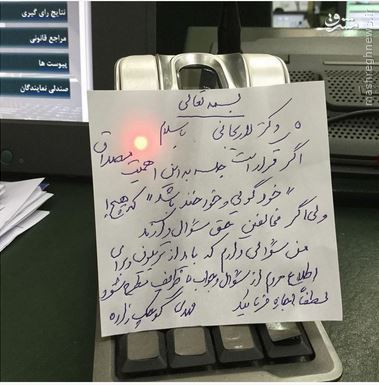 نتایج رای گیری
مراجع قانونی
پیوست ها
صندلی نمایندگان
مشرق
mashreghnews.ir
بسمه تعالی
دکتر لاریجانی باسلام
اگر قرار است جلسه به این اهمیت مصداق
"خود گویی و خود خندی باشد" که هیچ!
ولی اگر مخالفین حق سؤال دارند
من سؤالی دارم که باید از تریبون و برای
اطلاع مردم از سؤال و جواب با ظریف مطرح شود
لطفاً اجازه فرمائید مهدی کوچک زاده